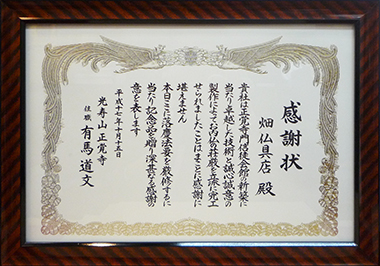 感謝状
畑仏具店 殿
貴社は正覚寺門信徒会館の新築に
当たり卓越した技術と誠心誠意の
製作によってお仏の荘厳を立派に完工
せられましたことはまことに感謝に
堪えません
本日ここに落慶法要を厳修するに
当たり記念品を贈り深甚なる感謝の
意を表します
平成十七年十月十五日
光寿山正覚寺
住職 有馬道文